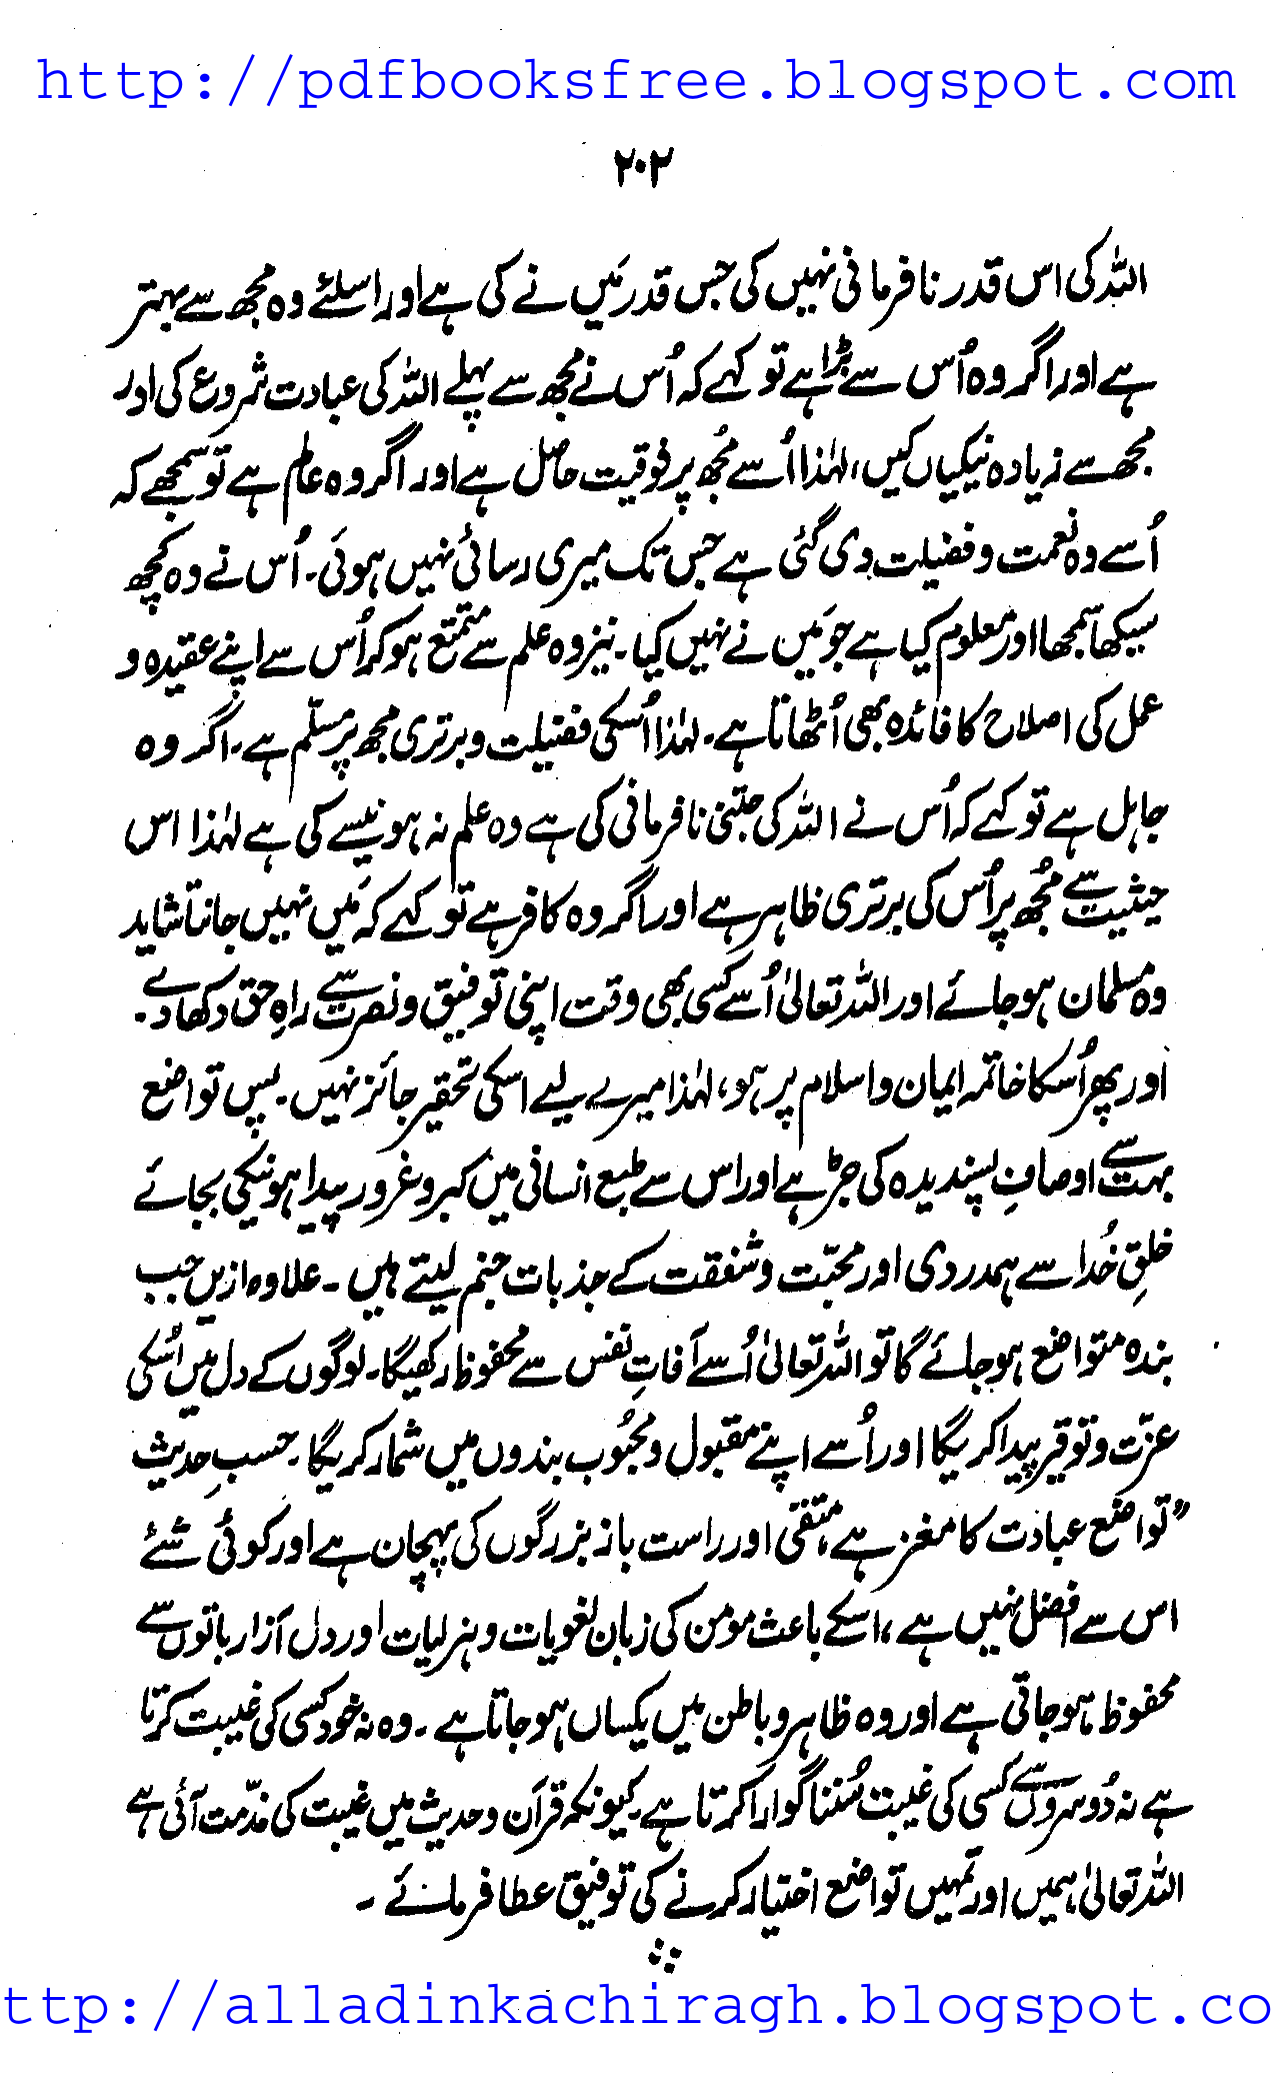 http://pdfbooksfree.blogspot.com
۲۰۲
اللہ کی اس قدر نافرمانی نہیں کی جس قدر مَیں نے کی ہے اور اسلئے وہ مجھ سے بہتر
ہے اور اگر وہ اُس سے بڑا ہے تو کہے کہ اُس نے مجھ سے پہلے اللہ کی عبادت شروع کی اور
مجھ سے زیادہ نیکیاں کیں، لہٰذا اُسے مُجھ پر فوقیت حاصل ہے اور اگر وہ عالم ہے تو سمجھے کہ
اُسے وہ نعمت و فضیلت دی گئی ہے جس تک میری رسائی نہیں ہوئی۔ اُس نے وہ کچھ
سیکھا سمجھا اور معلوم کیا ہے جو مَیں نے نہیں کیا۔ نیز وہ علم سے متمتع ہو کر اُس سے اپنے عقیدہ و
عمل کی اصلاح کا فائدہ بھی اُٹھاتا ہے۔ لہٰذا اُسکی فضیلت و برتری مجھ پر مسلّم ہے۔ اگر وہ
جاہل ہے تو کہے کہ اُس نے اللہ کی جتنی نافرمانی کی ہے وہ علم نہ ہونیسے کی ہے لہٰذا اس
حیثیت سے مُجھ پر اُس کی برتری ظاہر ہے اور اگر وہ کافر ہے تو کہے کہ مَیں نہیں جانتا شاید
وہ مسلمان ہو جائے اور اللہ تعالیٰ اُسے کسی بھی وقت اپنی توفیق و نصرت سے راہِ حق دکھا دے۔
اور پھر اُسکا خاتمہ ایمان و اسلام پر ہو، لہٰذا میرے لیے اسکی تحقیر جائز نہیں۔ پس تواضع
بہت سے اوصافِ پسندیدہ کی جڑ ہے اور اس سے طبع انسانی میں کبر و غرور پیدا ہونیکی بجائے
خلقِ خُدا سے ہمدردی اور محبّت و شفقت کے جذبات جنم لیتے ہیں۔ علاوہ ازیں جب
بندہ متواضع ہو جائے گا تو اللہ تعالیٰ اُسے آفاتِ نفس سے محفوظ رکھیگا۔ لوگوں کے دل میں اُسکی
عزّت و توقیر پیدا کریگا اور اُسے اپنے مقبول و محبُوب بندوں میں شمار کریگا۔ حسبِ حدیث
”تواضع عبادت کا مغز ہے، متقی اور راست باز بزرگوں کی پہچان ہے اور کوئی شئے
اس سے افضل نہیں ہے، اسکے باعث مومن کی زبان لغویات و ہزلیات اور دل آزار باتوں سے
محفوظ ہو جاتی ہے اور وہ ظاہر و باطن میں یکساں ہو جاتا ہے۔ وہ نہ خود کسی کی غیبت کرتا
ہے نہ دُوسروں سے کسی کی غیبت سُننا گوارا کرتا ہے۔ کیونکہ قرآن و حدیث میں غیبت کی مذمّت آئی ہے
اللہ تعالیٰ ہمیں اور تمہیں تواضع اختیار کرنے کی توفیق عطا فرمائے ۔
ttp://alladinkachiragh.blogspot.co